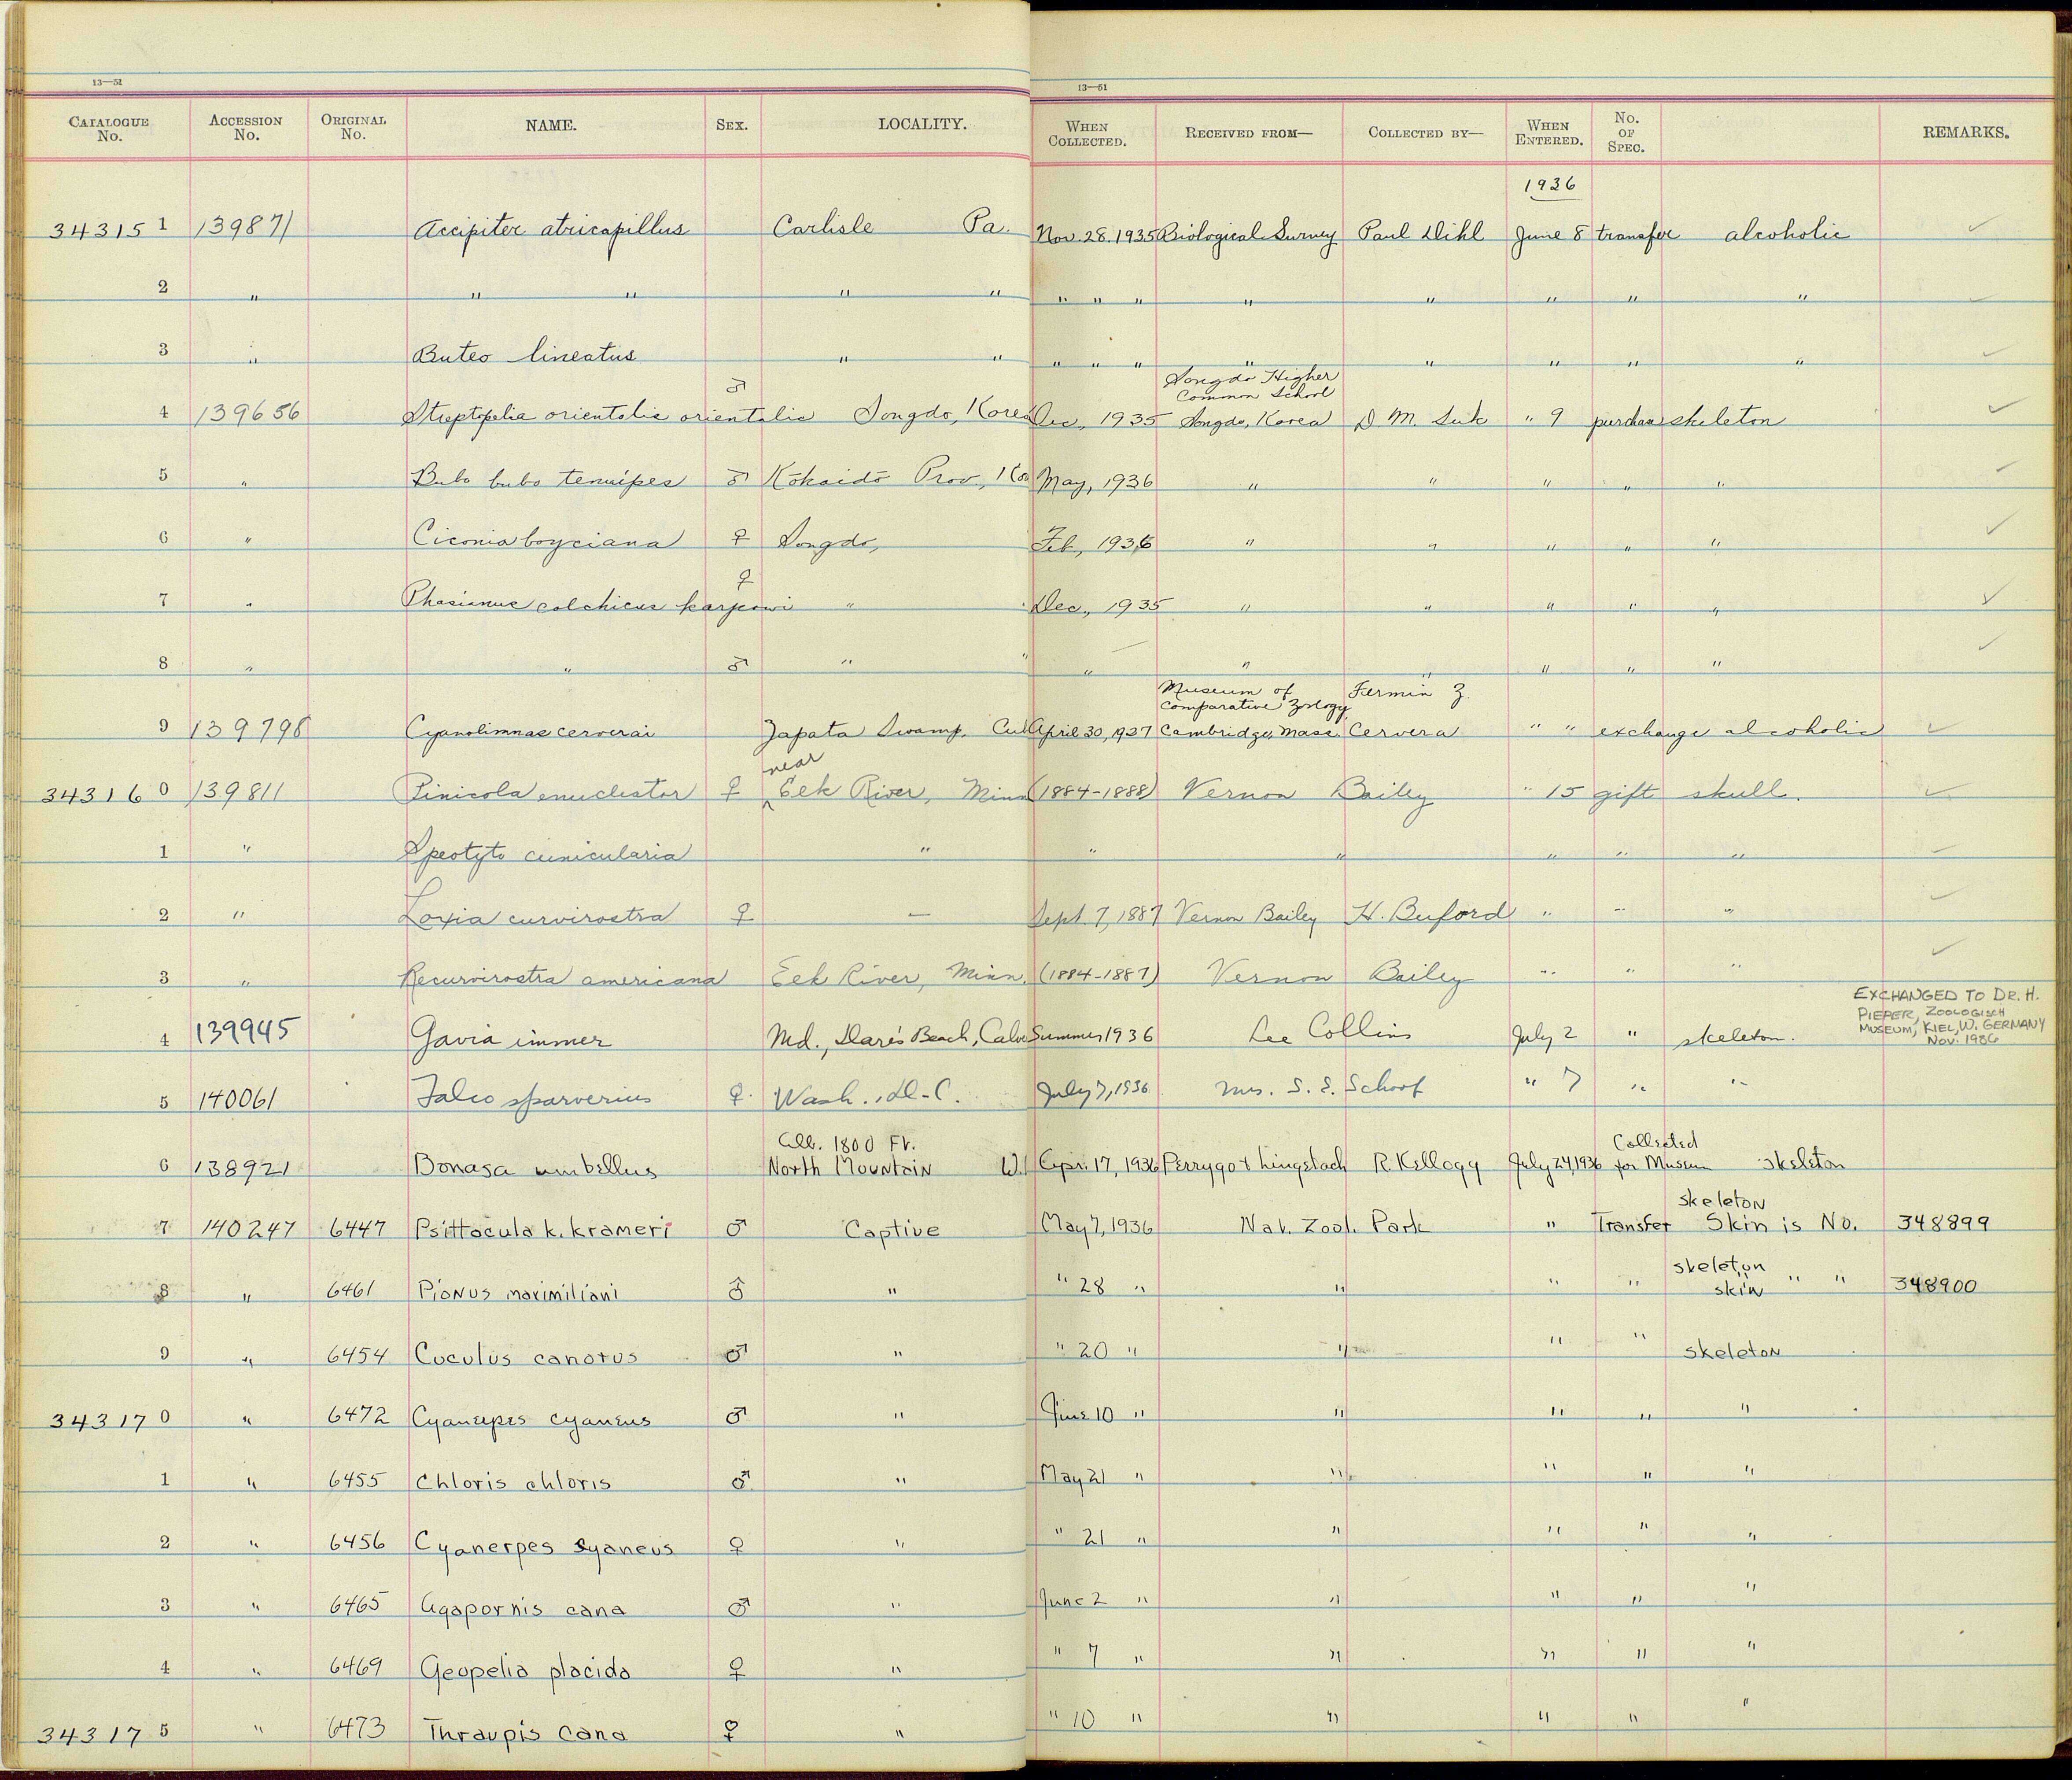 13—51
13—51
CATALOGUE No. ACCESSION No. ORIGINAL No. NAME. SEX. LOCALITY. WHEN COLLECTED. RECEIVED FROM— COLLECTED BY— WHEN ENTERED. No. OF SPEC. REMARKS.
1936
34315 1 139871 Accipiter atricapillus Carlisle Pa. Nov. 28, 1935 Biological Survey Paul Dihl June 8 transfer alcoholic ✓
2 " " " " " " " " " " " " " ✓
3 " Buteo lineatus " " " " " " " " " " ✓
♂ Songdo Higher Common School
4 139656 Streptopelia orientalis orientalis Songdo, Korea Dec, 1935 Songdo, Korea D. M. Suk " 9 purchase skeleton ✓
5 " Bubo bubo tenuipes ♂ Kōkaidō Prov, Ko May, 1936 " " " " " ✓
6 " Ciconia boyciana ♀ Songdo, Feb, 1936 " " " " " ✓
♀
7 " Phasianus colchicus karpowi " Dec., 1935 " " " " " ✓
8 " " ♂ " " " " " " " " ✓
Museum of Comparative Zoology Fermin Z.
9 139798 Cyanolimnas cerverai Zapata Swamp, Cu April 30, 1927 Cambridge, Mass. Cervera " " exchange alcoholic ✓
near
34316 0 139811 Pinicola enucleator ♀ Eek River, Minn (1884-1888) Vernon Bailey " 15 gift skull. ✓
1 " Speotyto cunicularia " " " " " " ✓
2 " Loxia curvirostra ♀ — Sept. 7, 1887 Vernon Bailey H. Buford " " " ✓
3 " Recurvirostra americana Eek River, Minn. (1884-1887) Vernon Bailey " " " ✓
EXCHANGED TO DR. H. PIEPER, ZOOLOGISCH MUSEUM, KIEL, W. GERMANY Nov. 1986
4 139945 Gavia immer Md., Dare's Beach, Calv Summer 1936 Lee Collins July 2 " skeleton.
5 140061 Falco sparverius ♀ Wash., D.C. July 7, 1936 Mrs. S. E. Schoof " 7 " "
Alt. 1800 Ft. Collected
6 138921 Bonasa umbellus North Mountain W. Apr. 17, 1936 Perrygo & Lingebach R. Kellogg July 24, 1936 for Museum Skeleton
skeleton
7 140247 6447 Psittacula k. krameri ♂ Captive May 7, 1936 Nat. Zool. Park " Transfer Skin is No. 348899
skeleton
8 " 6461 Pionus maximiliani ♂ " " 28 " " " " skin " " 348900
9 " 6454 Cuculus canorus ♂ " " 20 " " " " skeleton
34317 0 " 6472 Cyanerpes cyaneus ♂ " June 10 " " " " "
1 " 6455 Chloris chloris ♂ " May 21 " " " " "
2 " 6456 Cyanerpes cyaneus ♀ " " 21 " " " " "
3 " 6465 Agapornis cana ♂ " June 2 " " " " "
4 " 6469 Geopelia placida ♀ " " 7 " " " " "
34317 5 " 6473 Thraupis cana ♀ " " 10 " " " " "